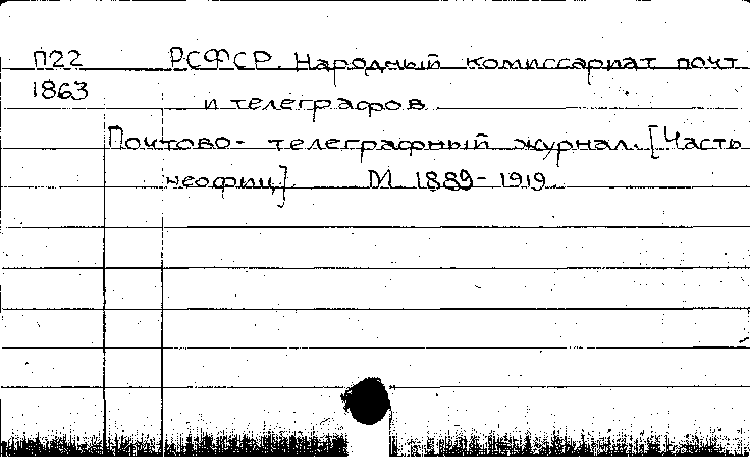 П22 РСФСР. Народный комиссариат почт
1863 и телеграфов.
Почтово-телеграфный журнал. [Часть
неофиц.] М. 1889-1919.